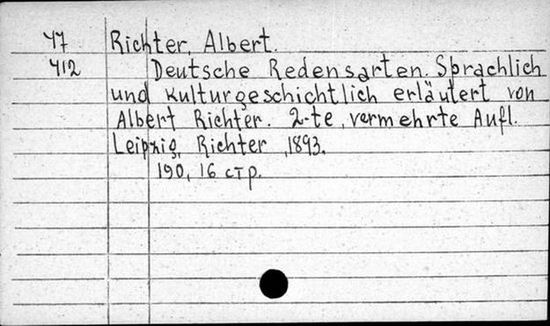 47 Richter, Albert.
412 Deutsche Redensarten. Sprachlich
und kulturgeschichtlich erläutert von
Albert Richter. 2-te, vermehrte Aufl.
Leipzig, Richter, 1893.
190, 16 стр.